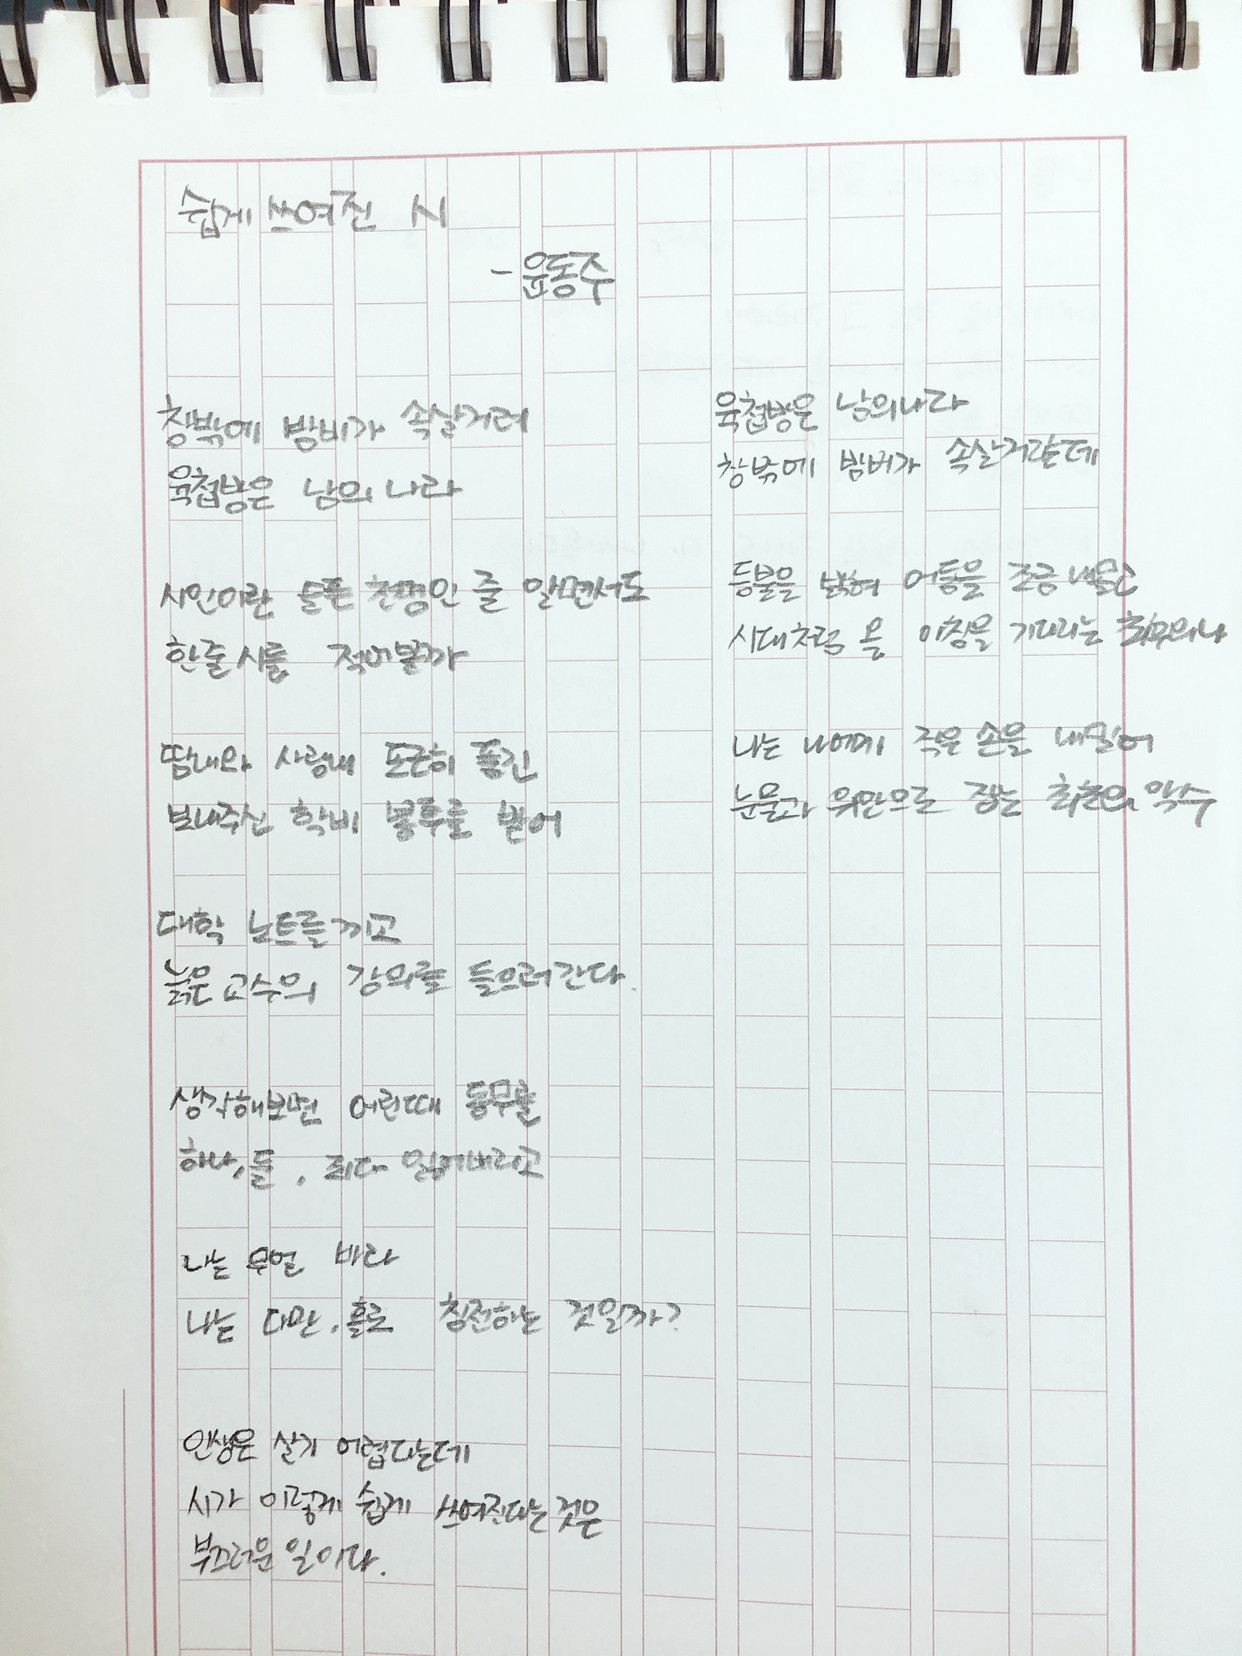 쉽게 쓰여진 시
- 윤동주
창밖에 밤비가 속살거려
육첩방은 남의 나라
시인이란 슬픈 천명인 줄 알면서도
한줄 시를 적어볼까
땀내와 사랑내 포근히 품긴
보내주신 학비 봉투를 받어
대학 노트를 끼고
늙은 교수의 강의를 들으러 간다.
생각해보면 어린때 동무를
하나, 둘, 죄다 잃어버리고
나는 무얼 바라
나는 다만, 홀로 침전하는 것일까?
인생은 살기 어렵다는데
시가 이렇게 쉽게 쓰여진다는 것은
부끄러운 일이다.
육첩방은 남의 나라
창밖에 밤비가 속살거리는데
등불을 밝혀 어둠을 조금 내몰고
시대처럼 올 아침을 기다리는 최후의 나
나는 나에게 작은 손을 내밀어
눈물과 위안으로 잡는 최초의 악수